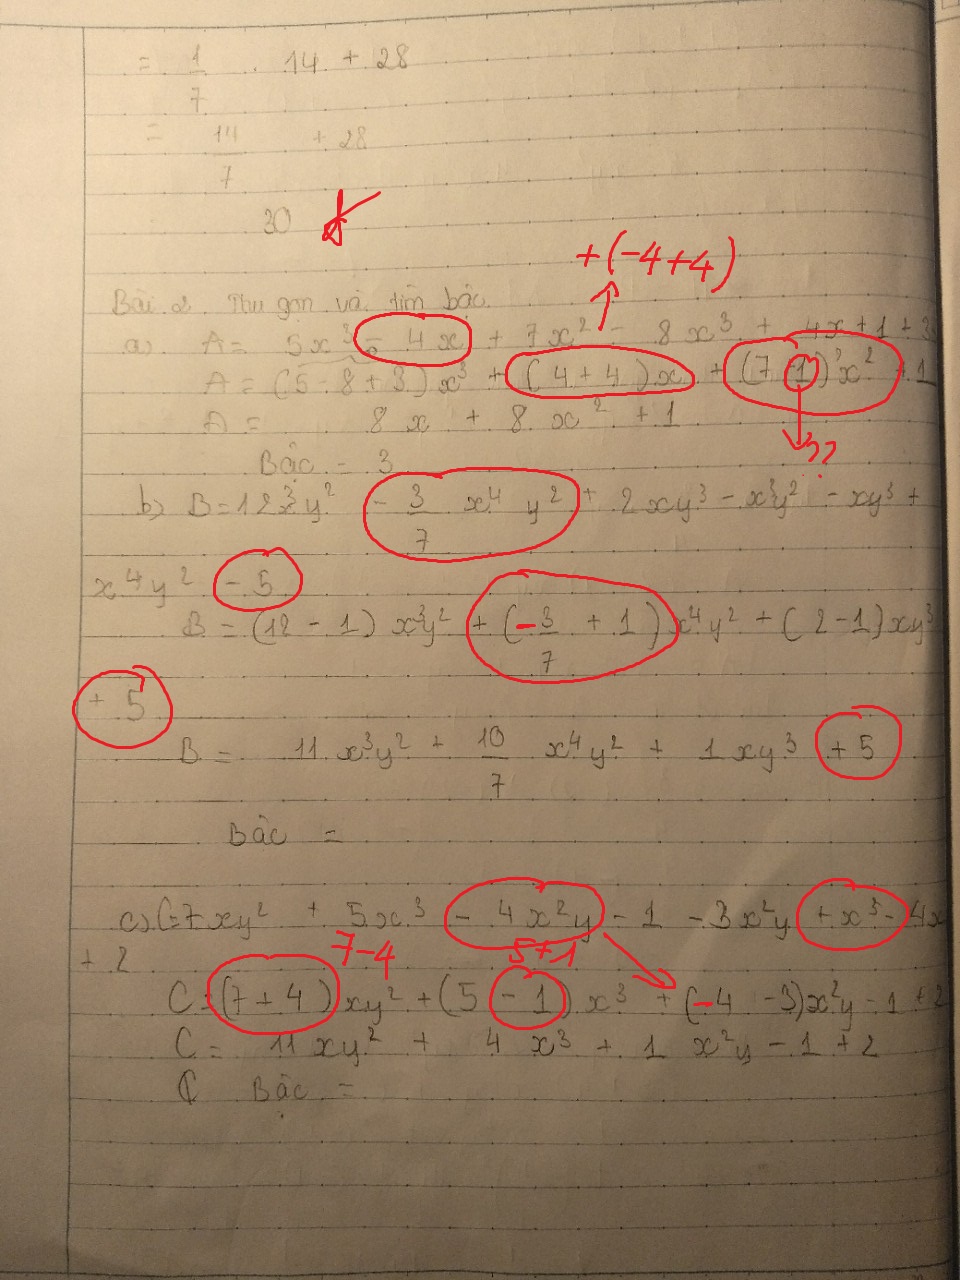 = 1/7 . 14 + 28
= 14/7 + 28
30
+(-4+4)
Bài 2. Thu gọn và tìm bậc.
a) A = 5x³ - 4x + 7x² - 8x³ + 4x + 1 + 3
A = (5 - 8 + 3)x³ + (4 + 4)x + (7 - 1)x² + 1
??
A = 8x + 8x² + 1
Bậc = 3
b) B = 12x³y² - 3/7 x⁴y² + 2xy³ - x³y² - xy³ +
x⁴y² - 5
B = (12 - 1)x³y² + (-3/7 + 1)x⁴y² + (2 - 1)xy³
+ 5
B = 11x³y² + 10/7 x⁴y² + 1xy³ + 5
Bậc =
c) C = 7xy² + 5x³ - 4x²y - 1 - 3x²y + x³ - 4x
+ 2
7-4 5+1
C = (7 + 4)xy² + (5 - 1)x³ + (-4 - 3)x²y - 1 + 2
C = 11xy² + 4x³ + 1x²y - 1 + 2
C Bậc =